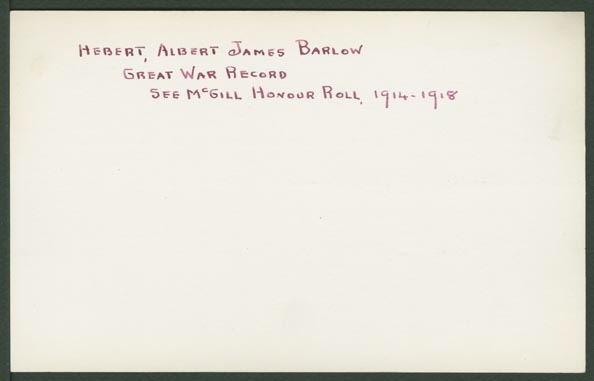 HEBERT, ALBERT JAMES BARLOW
GREAT WAR RECORD
SEE McGILL HONOUR ROLL, 1914-1918